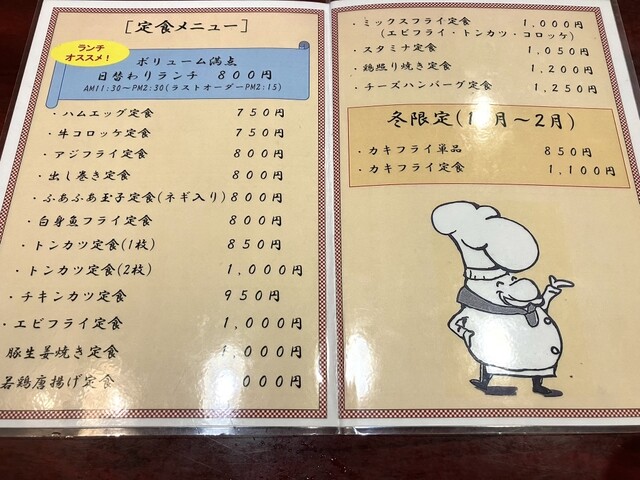 [定食メニュー]
ランチ
オススメ!
ボリューム満点
日替わりランチ 800円
AM11:30~PM2:30(ラストオーダーPM2:15)
・ハムエッグ定食 750円
・牛コロッケ定食 750円
・アジフライ定食 800円
・出し巻き定食 800円
・ふあふあ玉子定食(ネギ入り) 800円
・白身魚フライ定食 800円
・トンカツ定食(1枚) 850円
・トンカツ定食(2枚) 1,000円
・チキンカツ定食 950円
・エビフライ定食 1,000円
豚生姜焼き定食 1,000円
若鶏唐揚げ定食 000円
・ミックスフライ定食 1,000円
(エビフライ・トンカツ・コロッケ)
・スタミナ定食 1,050円
・鶏照り焼き定食 1,200円
・チーズハンバーグ定食 1,250円
冬限定(1 月~2月)
・カキフライ単品 850円
・カキフライ定食 1,100円